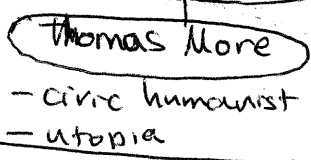 Thomas More
- civic humanist
- utopia